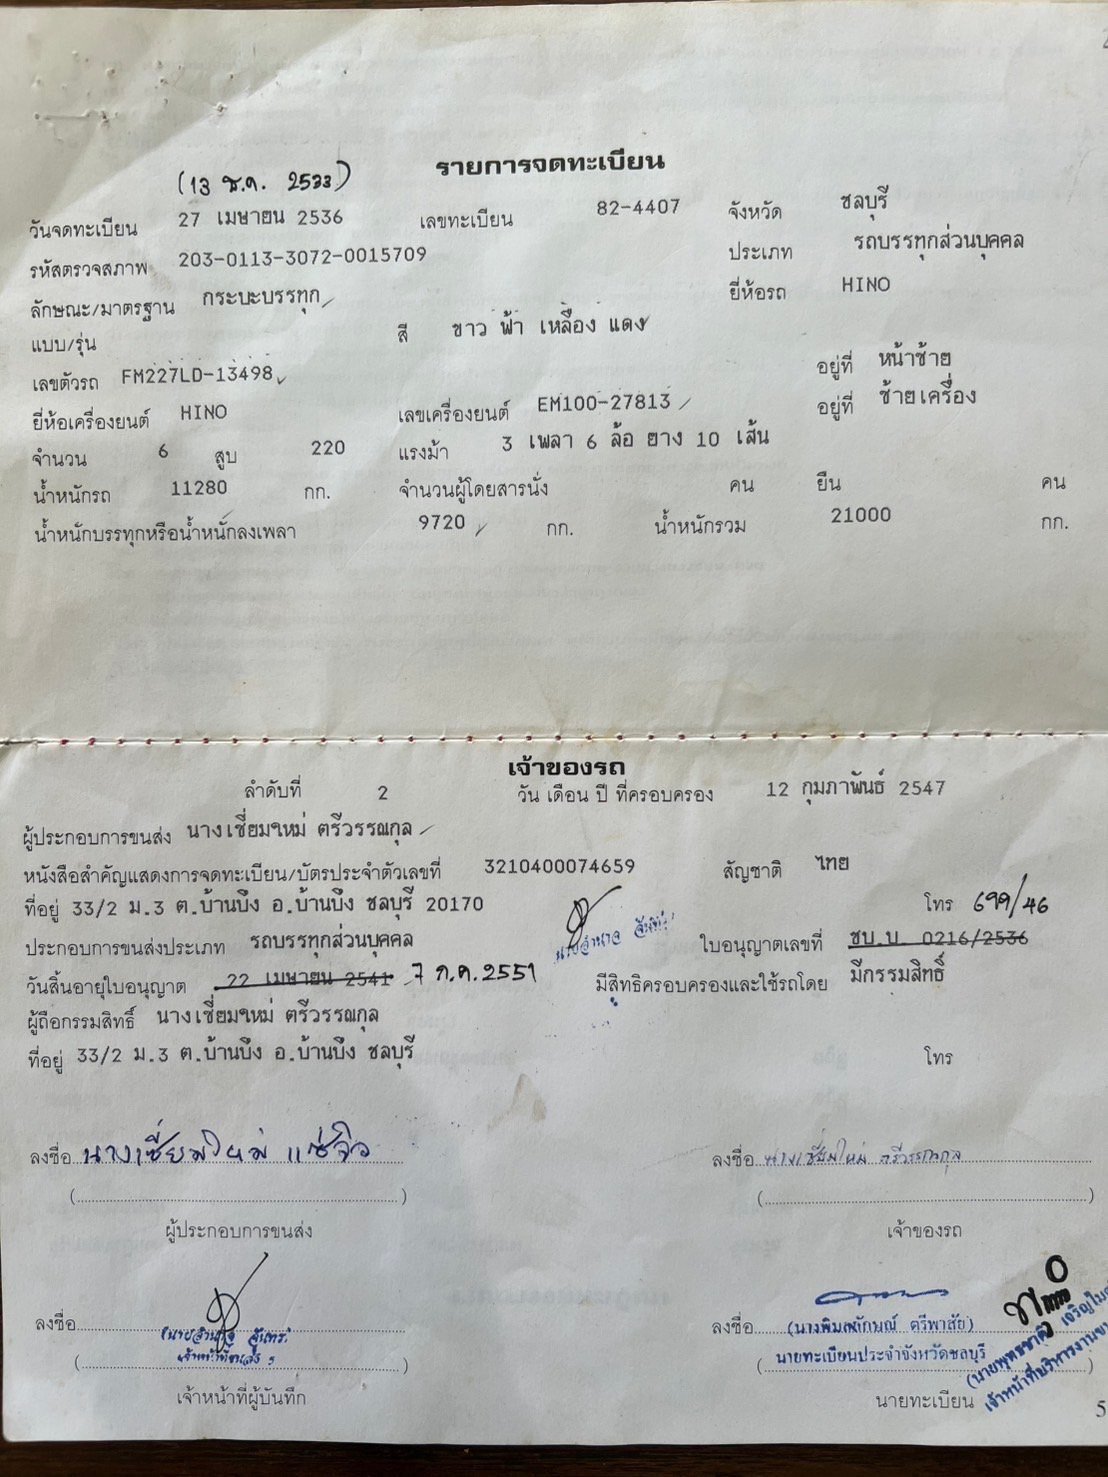 รายการจดทะเบียน
(13 ธ.ค. 2533)
วันจดทะเบียน 27 เมษายน 2536 เลขทะเบียน 82-4407 จังหวัด ชลบุรี
รหัสตรวจสภาพ 203-0113-3072-0015709 ประเภท รถบรรทุกส่วนบุคคล
ลักษณะ/มาตรฐาน กระบะบรรทุก ยี่ห้อรถ HINO
แบบ/รุ่น สี ขาว ฟ้า เหลือง แดง
เลขตัวรถ FM227LD-13498 อยู่ที่ หน้าซ้าย
ยี่ห้อเครื่องยนต์ HINO เลขเครื่องยนต์ EM100-27813 อยู่ที่ ซ้ายเครื่อง
จำนวน 6 สูบ 220 แรงม้า 3 เพลา 6 ล้อ ยาง 10 เส้น
น้ำหนักรถ 11280 กก. จำนวนผู้โดยสารนั่ง คน ยืน คน
น้ำหนักบรรทุกหรือน้ำหนักลงเพลา 9720 กก. น้ำหนักรวม 21000 กก.
เจ้าของรถ
ลำดับที่ 2 วัน เดือน ปี ที่ครอบครอง 12 กุมภาพันธ์ 2547
ผู้ประกอบการขนส่ง นางเชี่ยมใหม่ ตรีวรรณกุล
หนังสือสำคัญแสดงการจดทะเบียน/บัตรประจำตัวเลขที่ 3210400074659 สัญชาติ ไทย
ที่อยู่ 33/2 ม.3 ต.บ้านบึง อ.บ้านบึง ชลบุรี 20170 โทร 699/46
ประกอบการขนส่งประเภท รถบรรทุกส่วนบุคคล ใบอนุญาตเลขที่ ชบ.บ. 0216/2536
วันสิ้นอายุใบอนุญาต 22 เมษายน 2541 7 ก.ค.2551 มีสิทธิครอบครองและใช้รถโดย มีกรรมสิทธิ์
ผู้ถือกรรมสิทธิ์ นางเชี่ยมใหม่ ตรีวรรณกุล
ที่อยู่ 33/2 ม.3 ต.บ้านบึง อ.บ้านบึง ชลบุรี โทร
ลงชื่อ นางเซี่ยมใหม่ แซ่จิว ลงชื่อ นางเซี่ยมใหม่ ตรีวรรณกุล
(....................) (....................)
ผู้ประกอบการขนส่ง เจ้าของรถ
ลงชื่อ ลงชื่อ (นางพิมลลักษณ์ ตรีพาสัย)
นายทะเบียนประจำจังหวัดชลบุรี
เจ้าหน้าที่ผู้บันทึก นายทะเบียน
5